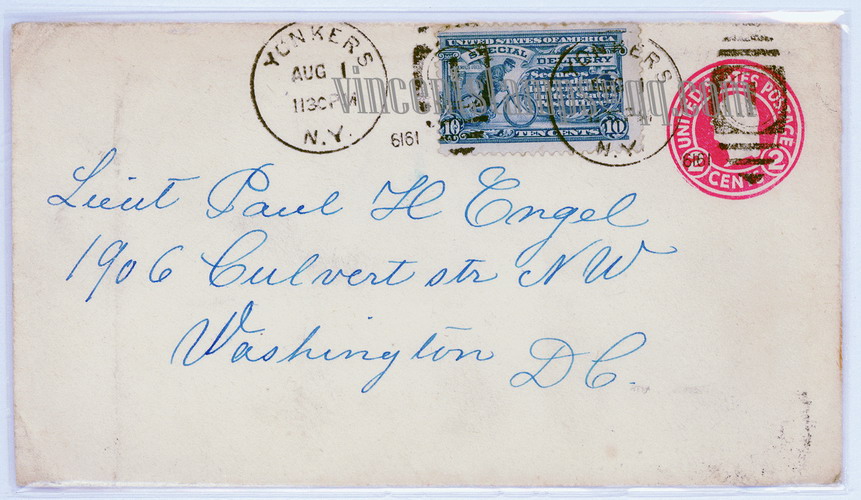 YONKERS
AUG 1
1130PM
N.Y.
1919
UNITED STATES OF AMERICA
SPECIAL DELIVERY
10 TEN CENTS 10
YONKERS
N.Y.
1919
UNITED STATES POSTAGE
2 CENTS 2
Lieut Paul H Engel
1906 Culvert str NW
Washington
D C.